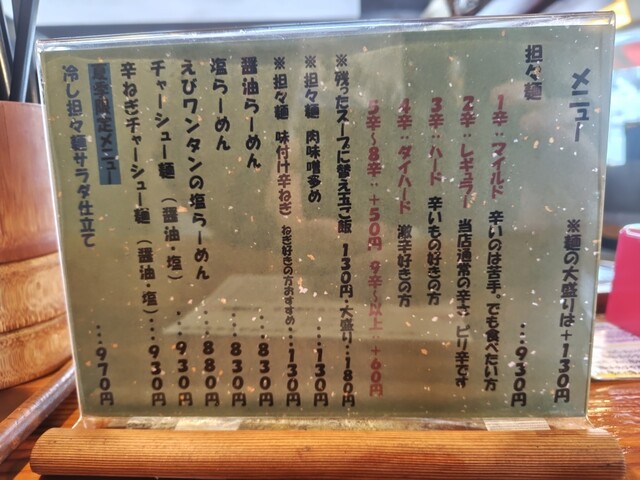 メニュー
※麺の大盛りは+130円
担々麺 …930円
1辛:マイルド 辛いのは苦手。でも食べたい方
2辛:レギュラー 当店通常の辛さ ピリ辛です
3辛:ハード 辛いもの好きの方
4辛:ダイハード 激辛好きの方
5辛〜8辛:+50円 9辛〜以上:+60円
※残ったスープに替え玉ご飯 130円・大盛り:180円
※担々麺 肉味噌多め …130円
※担々麺 味付け辛ねぎ ねぎ好きの方おすすめ…130円
醤油らーめん …830円
塩らーめん …830円
えびワンタンの塩らーめん …880円
チャーシュー麺 (醤油・塩) …930円
辛ねぎチャーシュー麺 (醤油・塩)…930円
夏季限定メニュー
冷し担々麺サラダ仕立て …970円